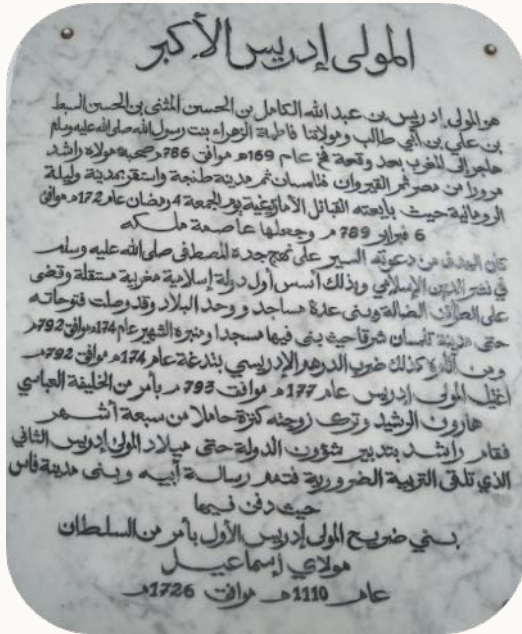 المولى إدريس الأكبر
هو المولى إدريس بن عبد الله الكامل بن الحسن المثنى بن الحسن السبط
بن علي بن أبي طالب ومولاتنا فاطمة الزهراء بنت رسول الله صلى الله عليه وسلم
هاجر إلى المغرب بعد وقعة فخ عام 169هـ موافق 786م صحبة مولاه راشد
مرورا من مصر ثم القيروان فتلمسان ثم مدينة طنجة واستقر بمدينة وليلة
الرومانية حيث بايعته القبائل الأمازيغية يوم الجمعة 4 رمضان عام 172هـ موافق
6 فبراير 789م وجعلها عاصمة ملكه
كان الهدف من دعوته السير على نهج جده المصطفى صلى الله عليه وسلم
في نشر الدين الإسلامي وبذلك أسس أول دولة إسلامية مغربية مستقلة وقضى
على الطوائف الضالة وبنى عدة مساجد ووحد البلاد وقد وصلت فتوحاته
حتى مدينة تلمسان شرقا حيث بنى فيها مسجدا ومنبره الشهير عام 174هـ موافق 792م
ومن آثاره كذلك ضرب الدرهم الإدريسي بتدغة عام 174هـ موافق 792م
اغتيل المولى إدريس عام 177هـ موافق 793م بأمر من الخليفة العباسي
هارون الرشيد وترك زوجته كنزة حاملا من سبعة أشهر
فقام راشد بتدبير شؤون الدولة حتى ميلاد المولى إدريس الثاني
الذي تلقى التربية الضرورية فتمم رسالة أبيه وبنى مدينة فاس
حيث دفن فيها
بني ضريح المولى إدريس الأول بأمر من السلطان
مولاي إسماعيل
عام 1110هـ موافق 1726م